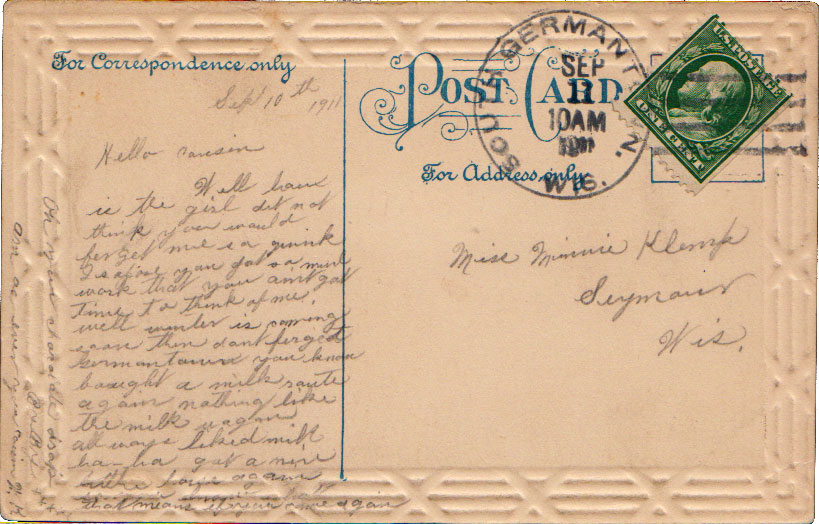 For Correspondence only
POST CARD
For Address only
SOUTH GERMANTOWN.
WIS.
SEP
11
10AM
1911
U.S. POSTAGE
ONE CENT
Sept 10th
1911
Hello cousin
Well how
is the girl did not
think you would
forget me so quick
I supose you got so much
work that you aint got
time to think of me.
well winter is coming
soon then dont forget
Germantown you know
bought a milk route
again nothing like
the milk wagon
always liked milk
ha-ha got a nice
little again
that means if you come again
Oh you
am as ever your cousin
Miss Minnie Klemp
Seymour
Wis.